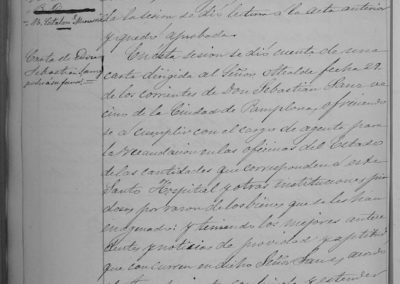 la la sesion se dió lectura á la acta anterior
y quedó aprobada.
Carta de
Sebastian
En esta sesion se dió cuenta de una
carta dirigida al Señor Alcalde fecha 22
de los corrientes de Don Sebastian
cino de la Ciudad de Pamplona, ofreciendo
se á cumplir con el cargo de agente para
la recaudacion en las oficinas del Estado
de las cantidades que corresponden á este
Santo Hospital y otras instituciones pia
dosas por razon de los bienes que se les han
enagenado: y teniendo los mejores antece
dentes y noticias de providad y aptitud
que concurren en dicho Señor